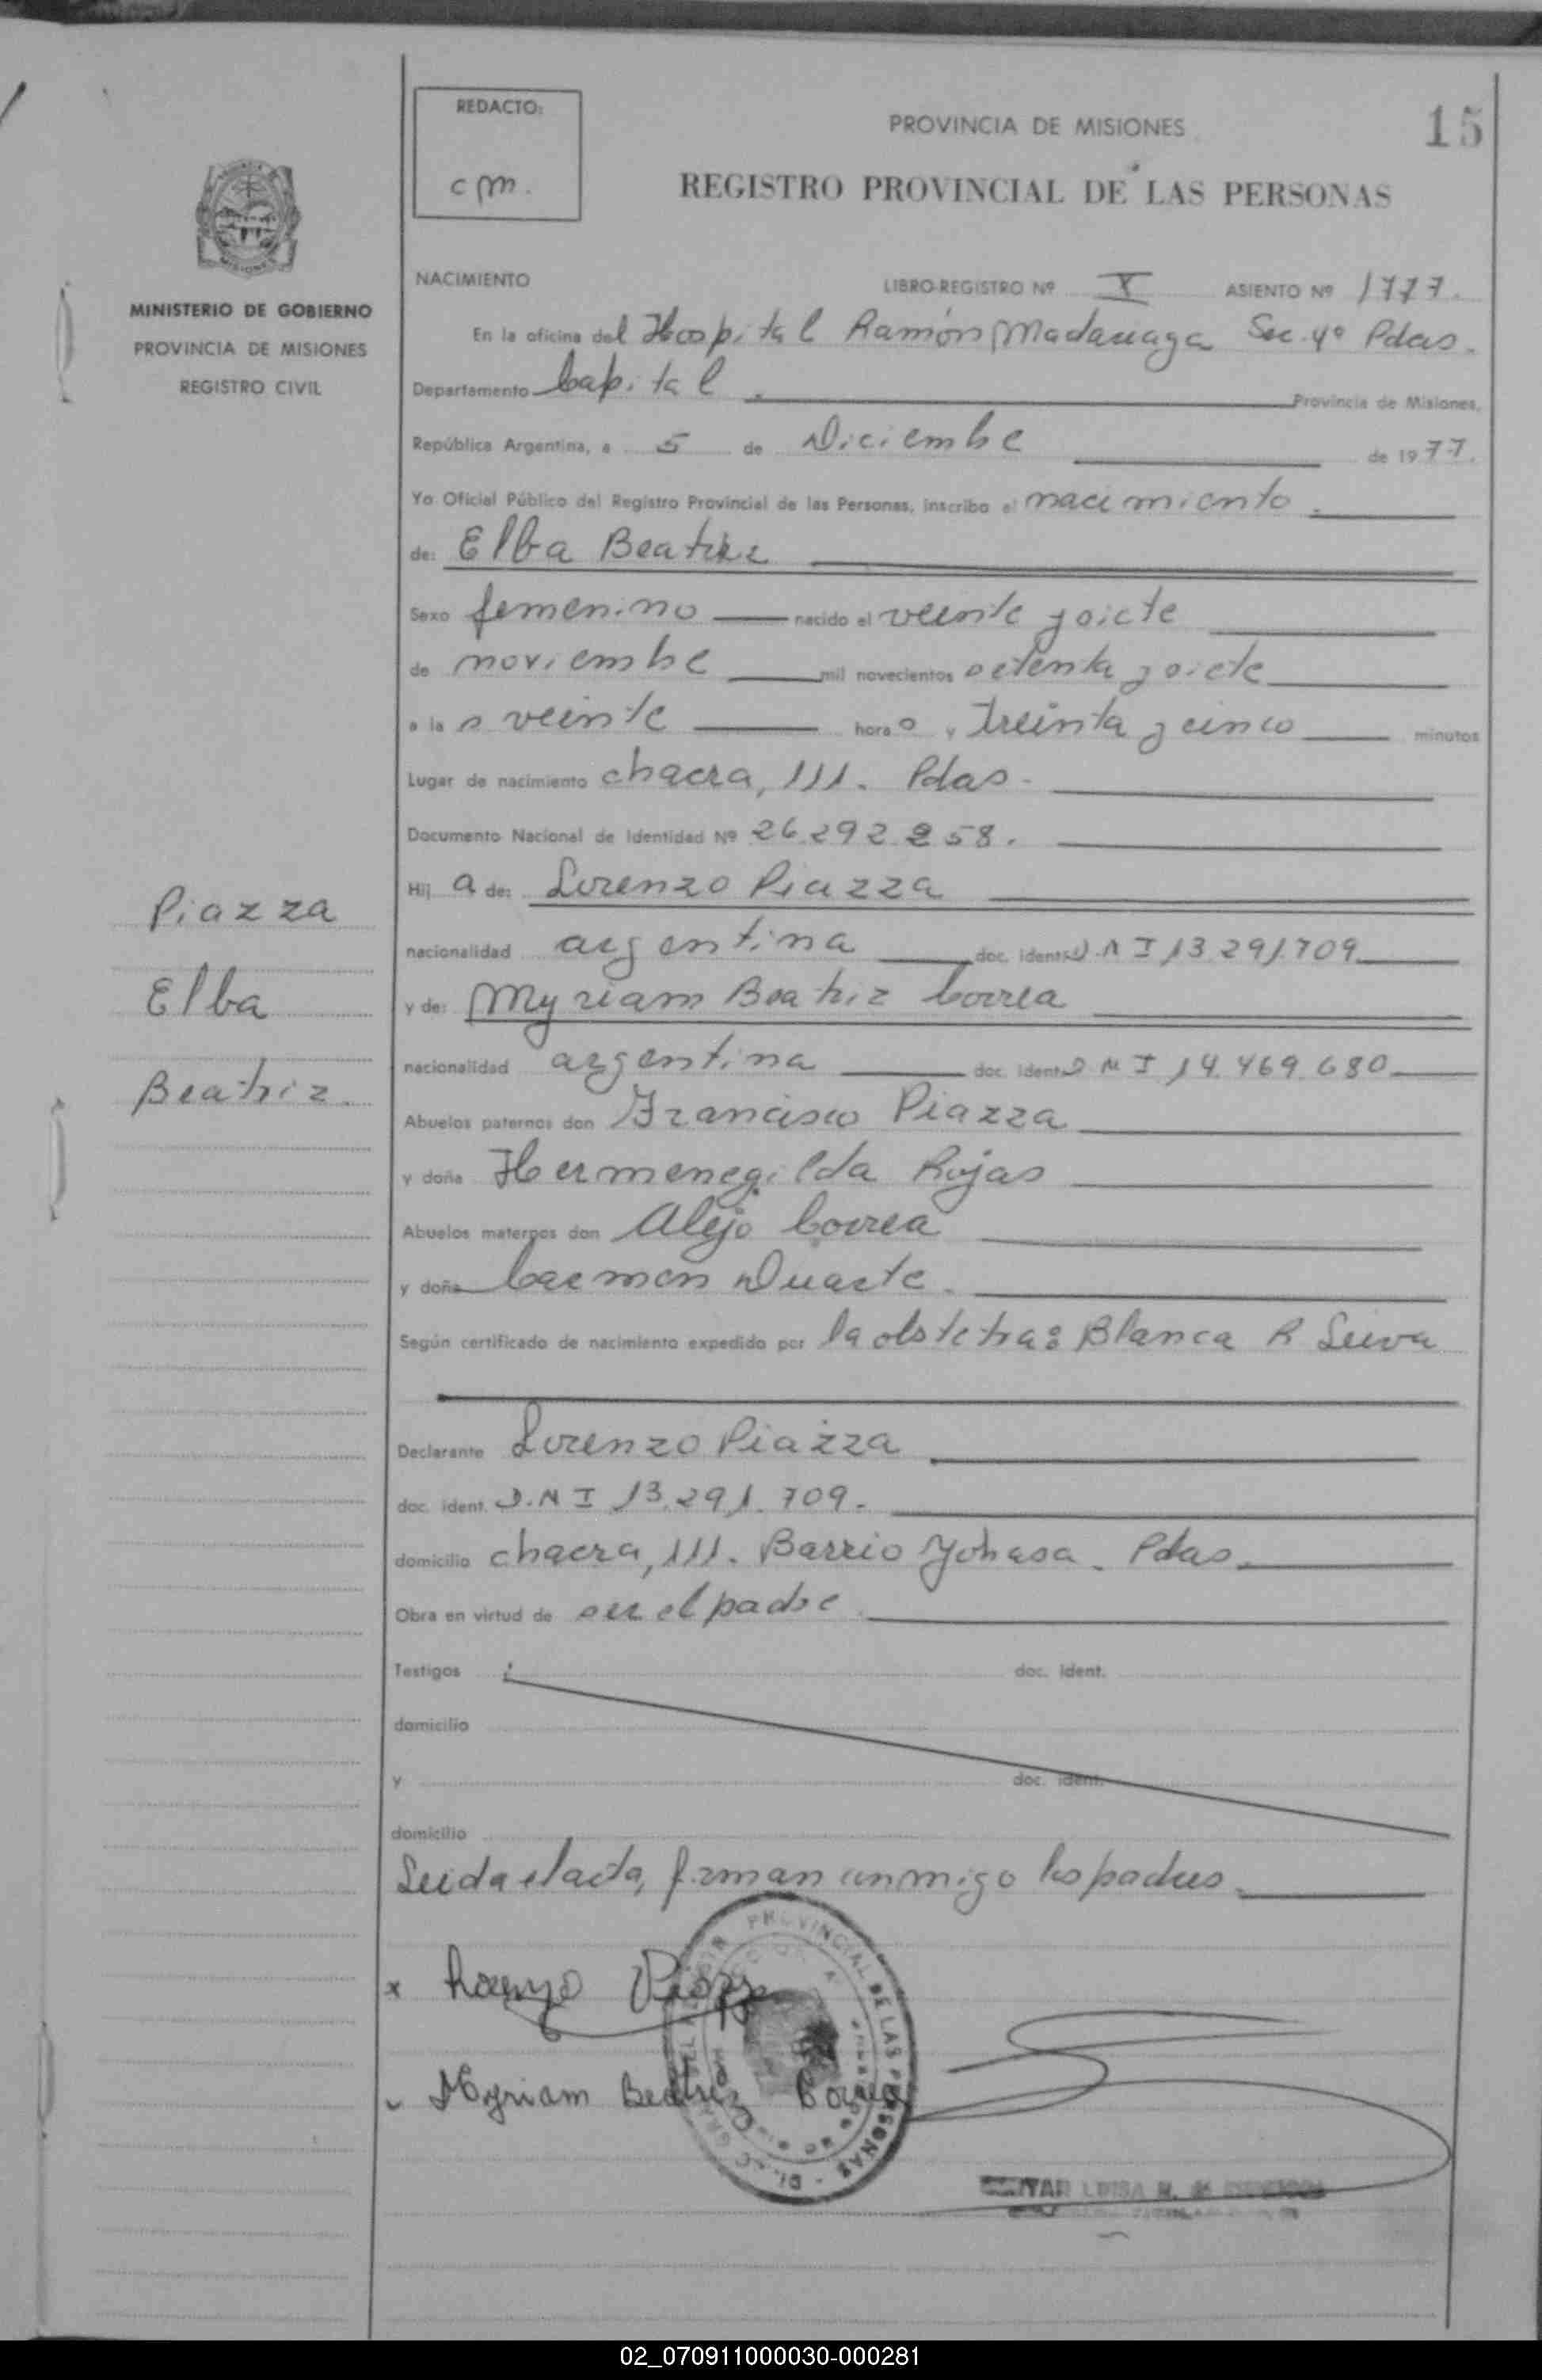 REDACTO:
cpm.
PROVINCIA DE MISIONES
15
REGISTRO PROVINCIAL DE LAS PERSONAS
MINISTERIO DE GOBIERNO
PROVINCIA DE MISIONES
REGISTRO CIVIL
NACIMIENTO LIBRO-REGISTRO Nº X ASIENTO Nº 1777.
En la oficina del Hospital Ramón Madariaga Sec. 4º Pdas.
Departamento Capital. Provincia de Misiones,
República Argentina, a 5 de Diciembre de 1977.
Yo Oficial Público del Registro Provincial de las Personas, inscribo el nacimiento.
de: Elba Beatriz
Sexo femenino nacido el veinte y siete
de noviembre mil novecientos setenta y siete
a las veinte horas y treinta y cinco minutos
Lugar de nacimiento chacra, 111. Pdas.
Documento Nacional de Identidad Nº 26.292.258.
Hija de: Lorenzo Piazza
nacionalidad argentina doc. ident. D.N I 13.291.709
y de: Myriam Beatriz Correa
nacionalidad argentina doc. ident. D N I 14.469.680
Abuelos paternos don Francisco Piazza
y doña Hermenegilda Rojas
Abuelos maternos don Alejo Correa
y doña Carmen Duarte.
Según certificado de nacimiento expedido por la obstetra: Blanca R Leiva
Declarante Lorenzo Piazza
doc. ident. D.N I 13.291.709.
domicilio chacra, 111. Barrio Yohasa. Pdas.
Obra en virtud de ser el padre.
Testigos doc. ident.
domicilio
y doc. ident.
domicilio
Leida el acta, firman conmigo los padres.
Piazza
Elba
Beatriz.
x Lorenzo Piazza
Myriam Beatriz Correa
PROVINCIAL DE LAS PERSONAS
LUISA
02_070911000030-000281